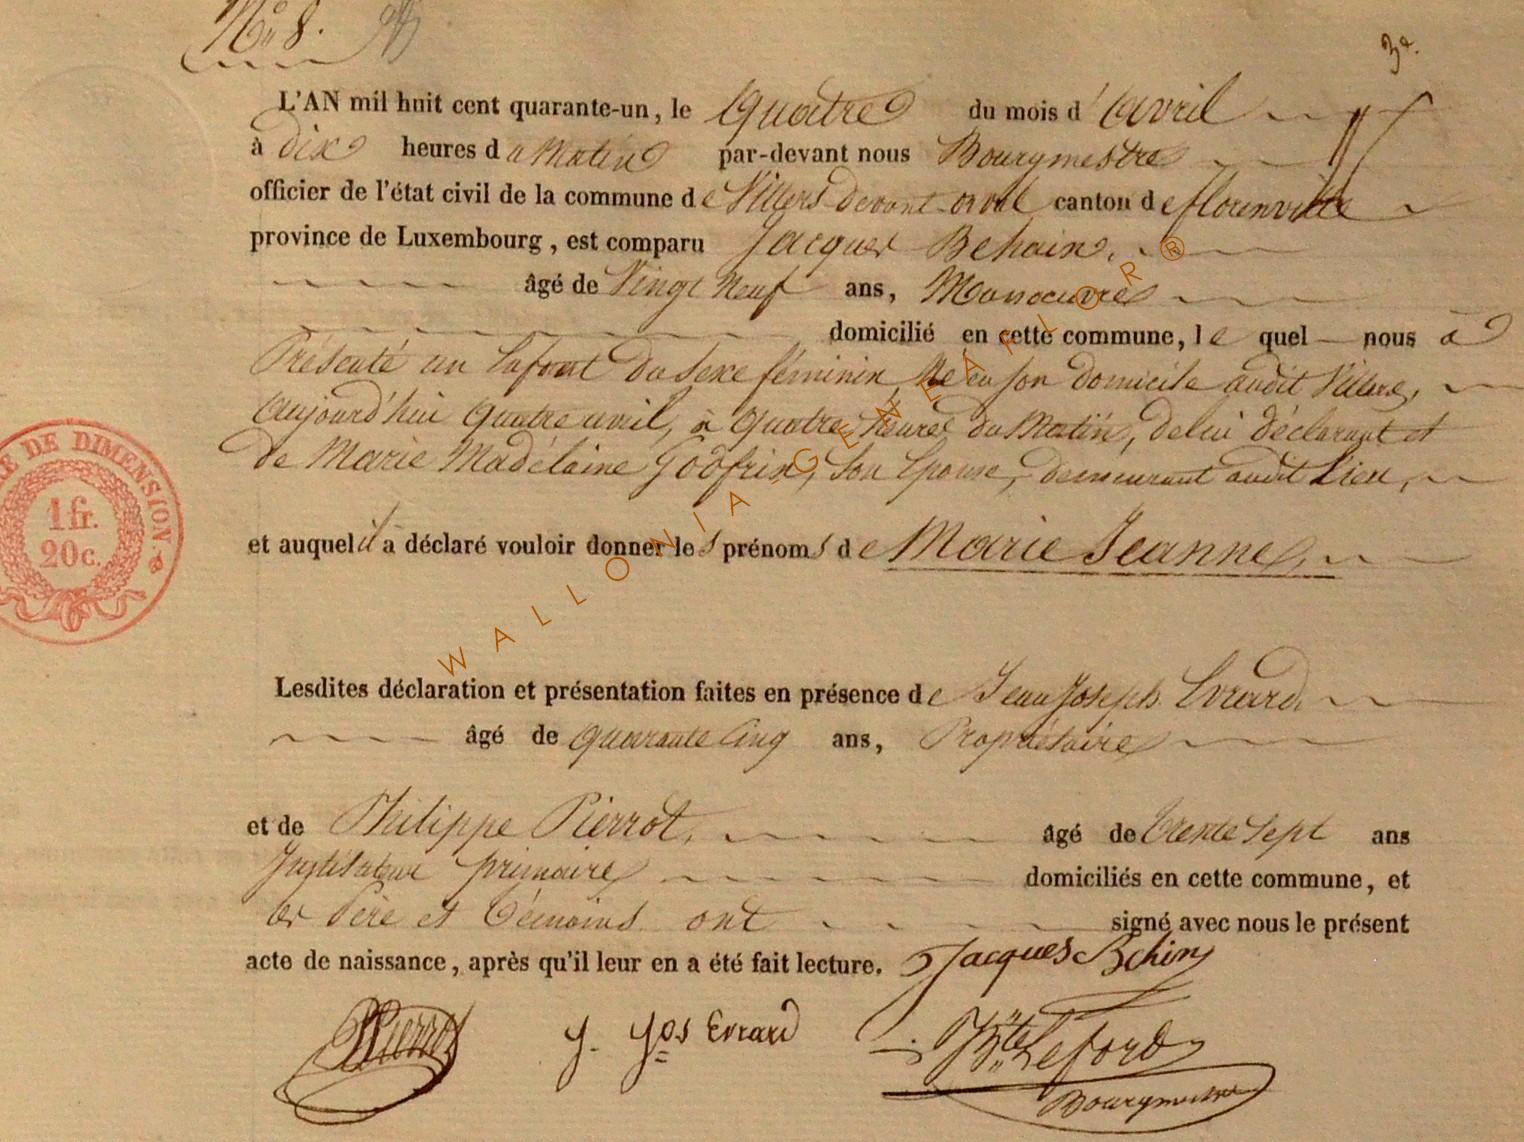 No 8.
3e.
L'AN mil huit cent quarante-un, le Quatre du mois d'avril
à dix heures du Matin par-devant nous Bourgmestre
officier de l'état civil de la commune de Villers devant orval canton de florenville
province de Luxembourg, est comparu Jacques Behain,
âgé de Vingt Neuf ans, Manoeuvre
domicilié en cette commune, le quel nous à
Présenté un Enfant du Sexe féminin, Né en son domicile audit Villers,
aujourd'hui quatre avril, à quatre heures du Matin, de lui déclarant et
de Marie Madélaine Godfrin, son Epouse, demeurant audit Lieu,
et auquel il a déclaré vouloir donner les prénoms de Marie Jeanne,
RE DE DIMENSION.
1 fr.
20c.
Lesdites déclaration et présentation faites en présence de Jean Joseph Evrard,
âgé de quarante Cinq ans, Propriétaire
et de Philippe Pierrot, âgé de trente Sept ans
Instituteur primaire domiciliés en cette commune, et
les Père et Témoins ont signé avec nous le présent
acte de naissance, après qu'il leur en a été fait lecture. Jacques Behin
Pierrot J. Jos Evrard Jn Bte Leford
Bourgmestre
WALLONIA GENEAFLOR ®